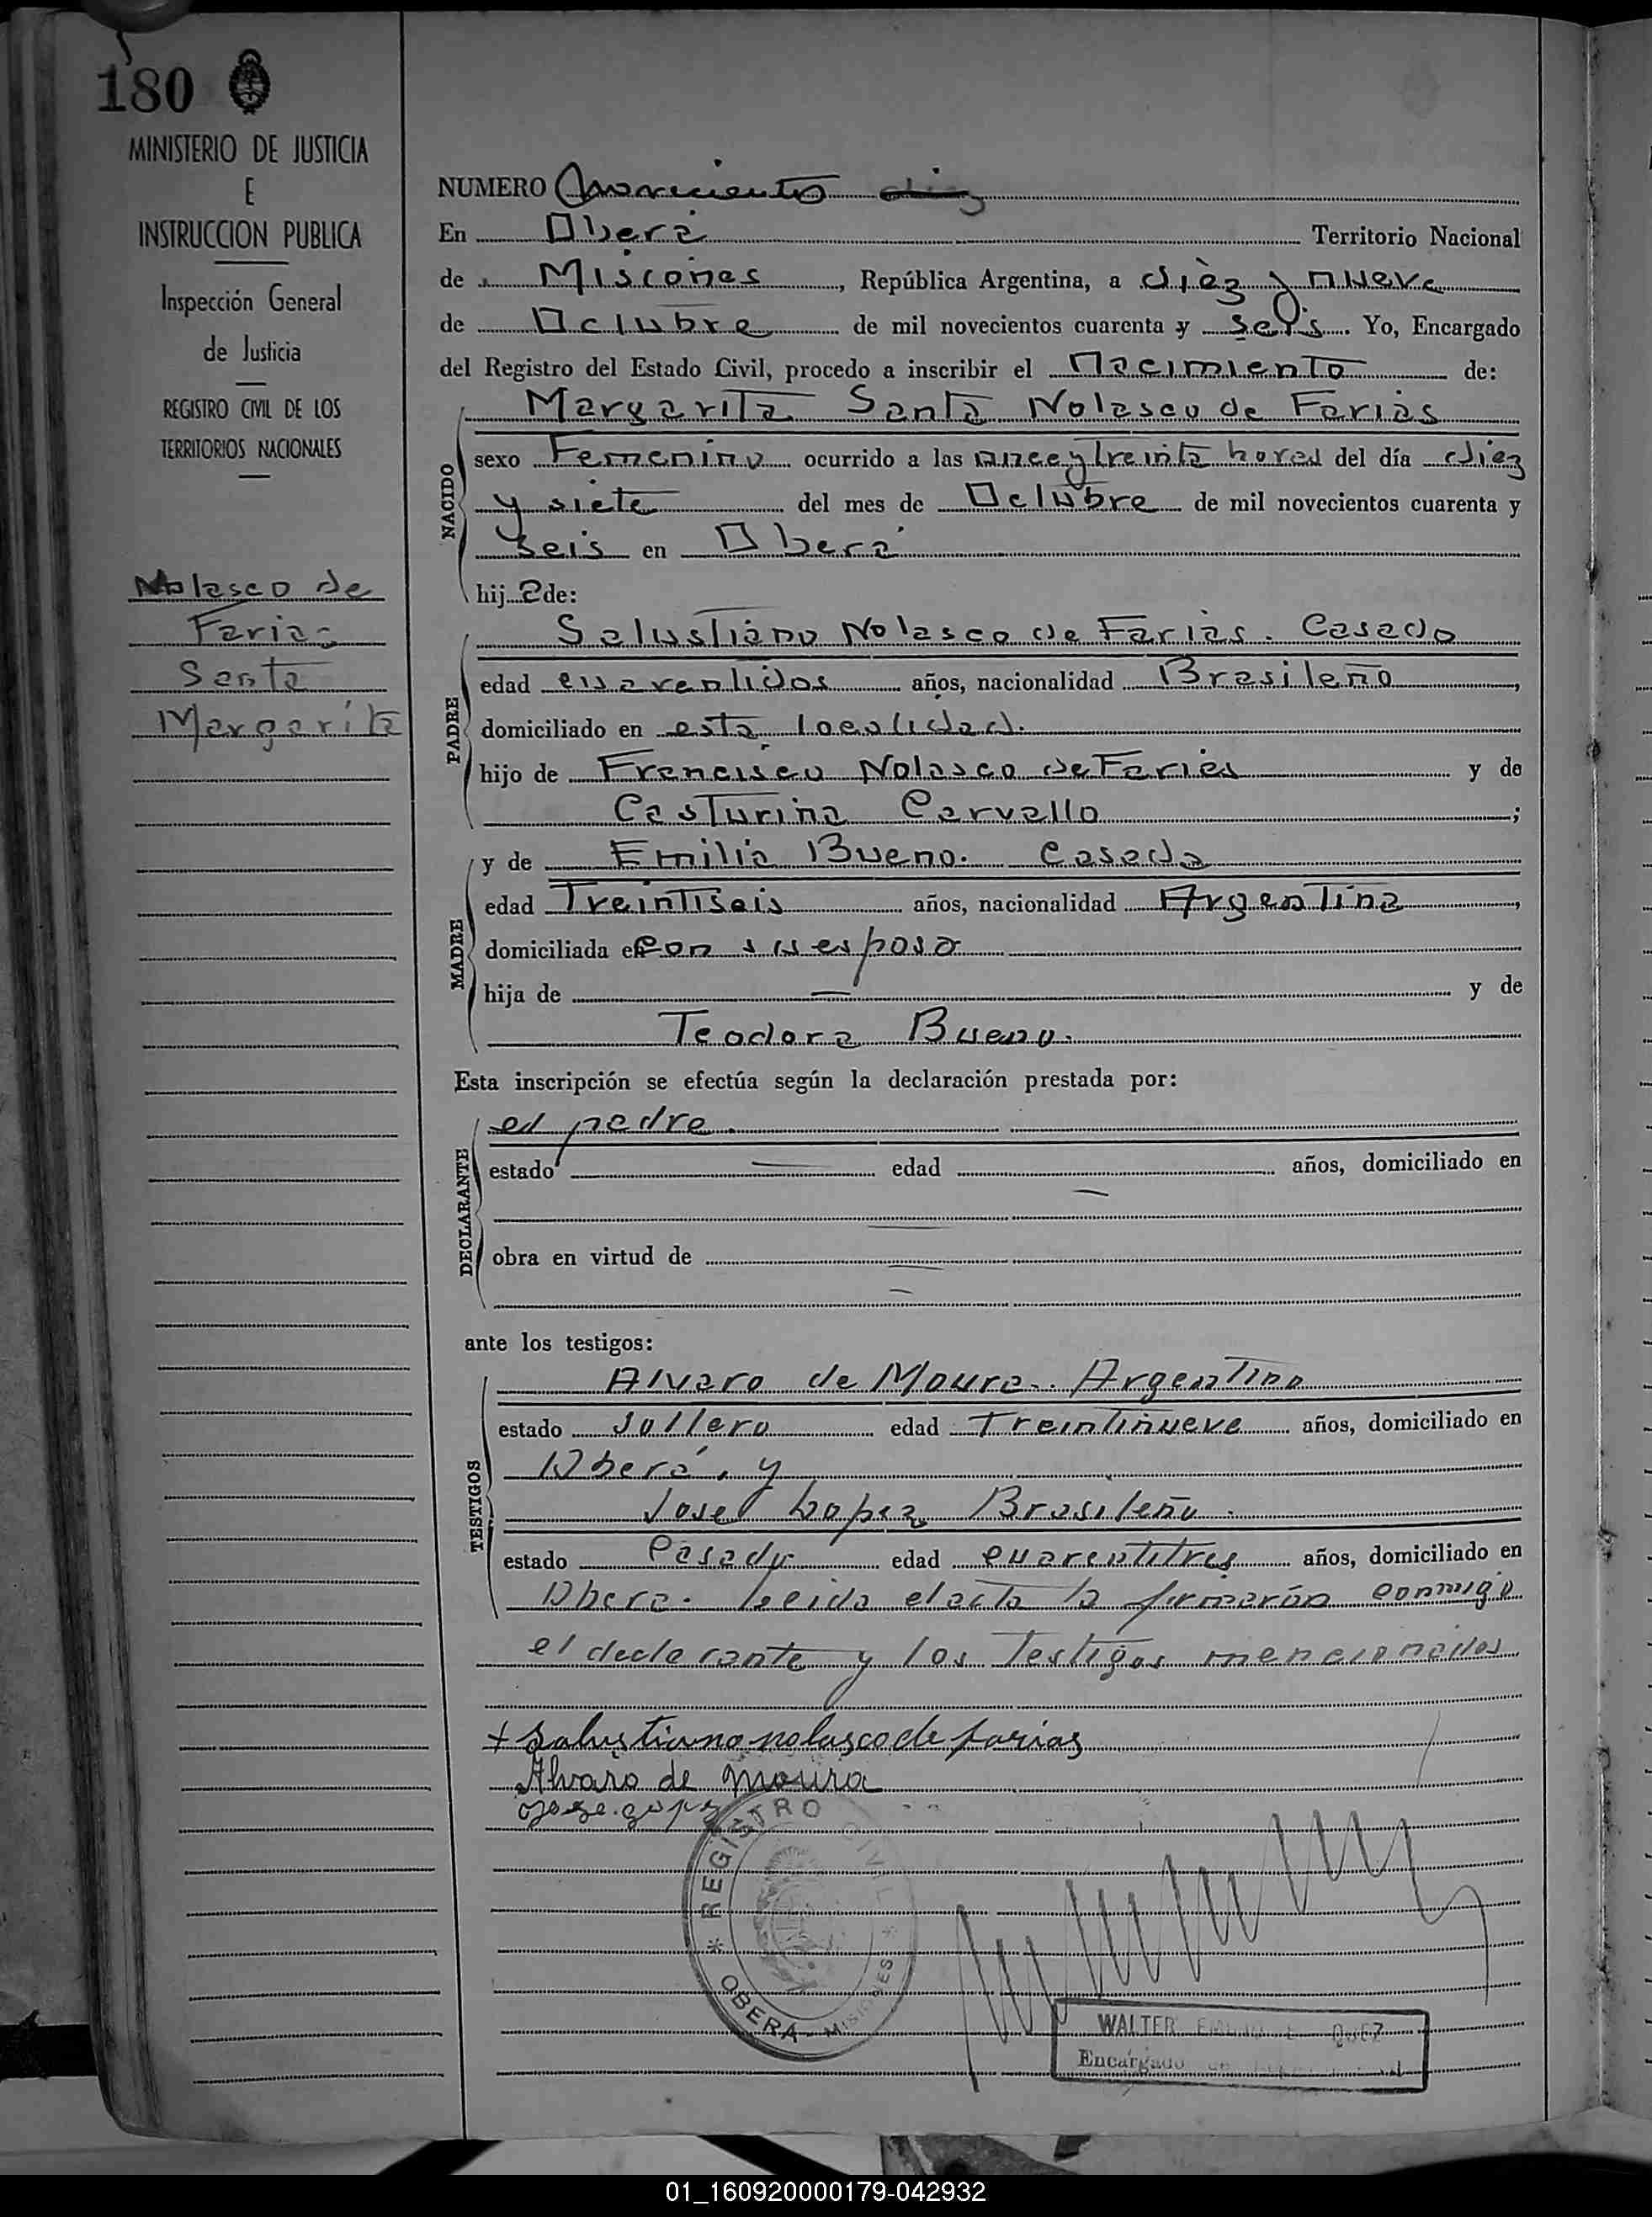 180
MINISTERIO DE JUSTICIA
E
INSTRUCCION PUBLICA
Inspección General
de Justicia
REGISTRO CIVIL DE LOS
TERRITORIOS NACIONALES
Nolasco de
Farias
Santa
Margarita
NUMERO Novecientos diez
En Oberá Territorio Nacional
de Misiones, República Argentina, a diez y nueve
de Octubre de mil novecientos cuarenta y seis. Yo, Encargado
del Registro del Estado Civil, procedo a inscribir el Nacimiento de:
NACIDO
Margarita Santa Nolasco de Farias
sexo Femenino ocurrido a las once y treinta horas del día diez
y siete del mes de Octubre de mil novecientos cuarenta y
seis en Oberá
hij a de:
PADRE
Salustiano Nolasco de Farias. Casado
edad cuarentidos años, nacionalidad Brasileño,
domiciliado en esta localidad.
hijo de Francisco Nolasco de Farias y de
Casturina Carvallo;
MADRE
y de Emilia Bueno. Casada
edad Treintiseis años, nacionalidad Argentina,
domiciliada en con su esposo
hija de — y de
Teodora Bueno.
Esta inscripción se efectúa según la declaración prestada por:
DECLARANTE
el padre.
estado — edad — años, domiciliado en
obra en virtud de —
ante los testigos:
TESTIGOS
Alvaro de Moura. Argentino
estado soltero edad Treintinueve años, domiciliado en
Oberá, y
Jose Lopez Brasileño.
estado Casado edad cuarentitres años, domiciliado en
Oberá. Leida el acta la firmarán conmigo
el declarante y los Testigos mencionados
+ Salustiano nolasco de farias
Alvaro de Moura
REGISTRO CIVIL
* OBERA - MISIONES *
WALTER
Encargado
01_160920000179-042932